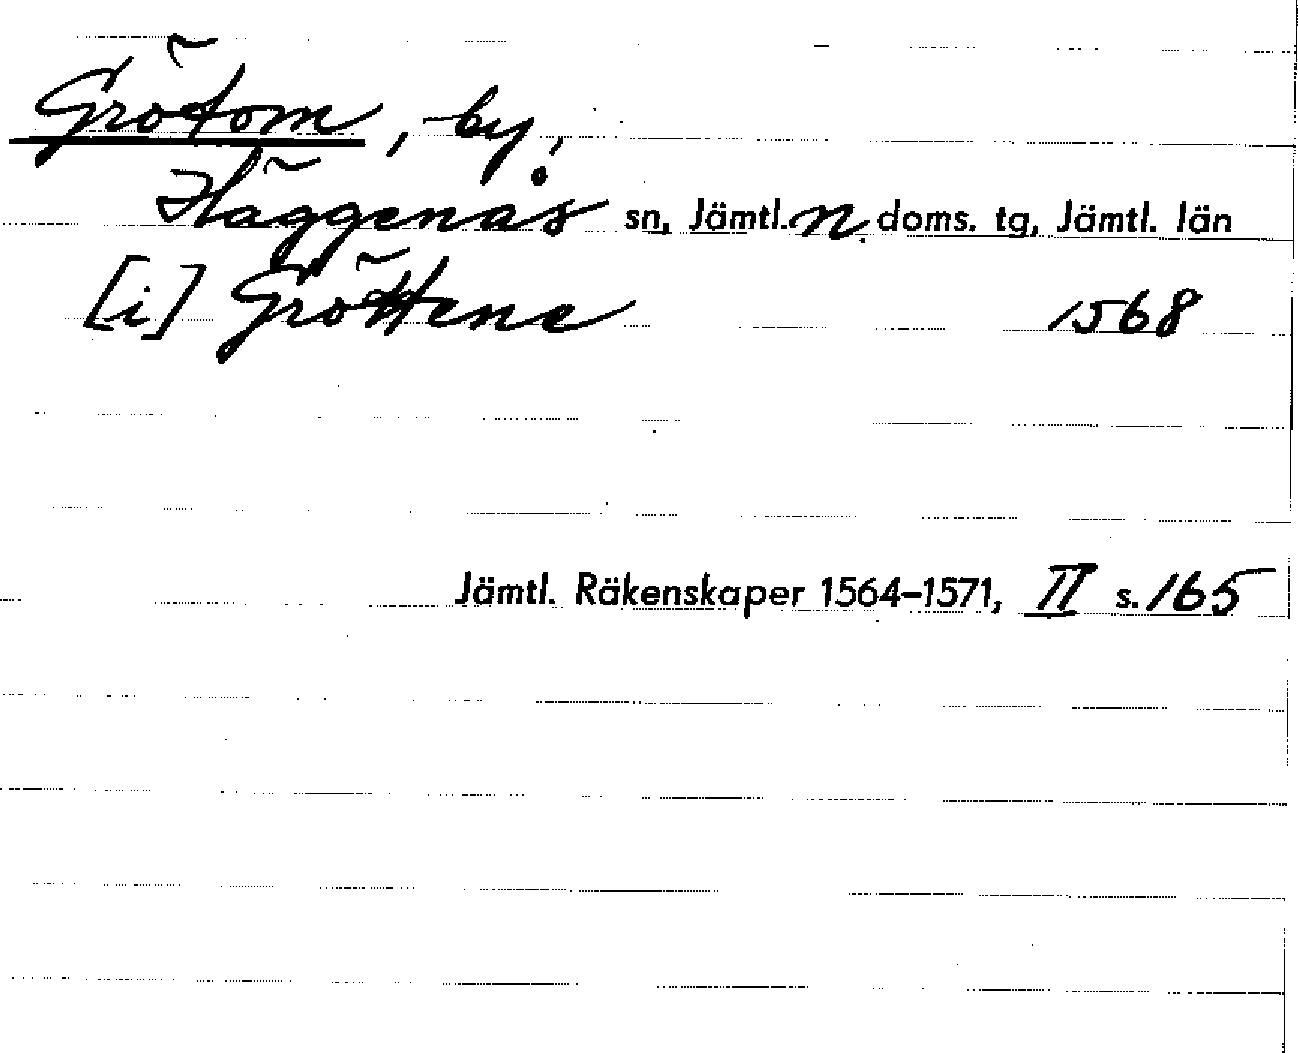 Grötom, by!
Häggenås sn, Jämtl. n. doms. tg, Jämtl. län
[i] Gröttene 1568
Jämtl. Räkenskaper 1564–1571, II s. 165